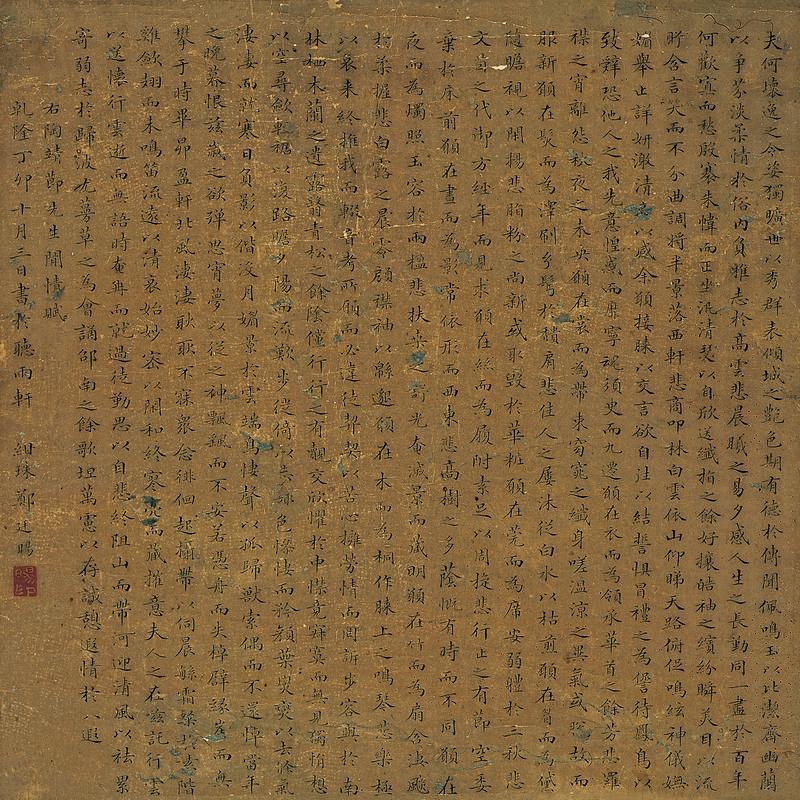 夫何壞逸之令姿獨曠世以秀群表傾城之艷色期有德於傳聞佩鳴玉以比潔齊幽蘭
以爭芬淡柔情於俗內負雅志於高雲悲晨曦之易夕感人生之長勤同一盡於百年
何歡寡而愁殷褰朱幃而正坐汎清瑟以自欣送纖指之餘好攘皓袖之繽紛瞬美目以流
眄含言笑而不分曲調將半景落西軒悲商叩林白雲依山仰睇天路俯促鳴絃神儀嫵
媚舉止詳妍激清音以感余願接膝以交言欲自往以結誓懼冒禮之為愆待鳳鳥以
致辭恐他人之我先意惶惑而靡寧魂須臾而九遷願在衣而為領承華首之餘芳悲羅
襟之宵離怨秋夜之未央願在裳而為帶束窈窕之纖身嗟溫涼之異氣或脫故而
服新願在髮而為澤刷玄鬢於頹肩悲佳人之屢沐從白水以枯煎願在眉而為黛
隨瞻視以閒揚悲脂粉之尚新或取毀於華粧願在莞而為席安弱體於三秋悲
文茵之代御方經年而見求願在絲而為履附素足以周旋悲行止之有節空委
棄於床前願在晝而為影常依形而西東悲高樹之多蔭慨有時而不同願在
夜而為燭照玉容於兩楹悲扶桑之舒光奄滅景而藏明願在竹而為扇含淒飆
於柔握悲白露之晨零顧襟袖以緜邈願在木而為桐作膝上之鳴琴悲樂極
以哀來終推我而輟音考所願而必違徒契契以苦心擁勞情而罔訴步容與於南
林栖木蘭之遺露翳青松之餘陰儻行行之有覿交欣懼於中懷竟寂寞而無見獨悁想
以空尋斂輕裾以復路瞻夕陽而流歎步徙倚以忘趣色慘悽而矜顏葉燮燮以去條氣
淒淒而就寒日負影以偕沒月媚景於雲端鳥悽聲以孤歸獸索偶而不還悼當年
之晚暮恨茲歲之欲殫思宵夢以從之神飄飄而不安若憑舟而失棹譬緣崖而無
攀于時畢昴盈軒北風淒淒耿耿不寐眾念徘徊起攝帶以伺晨繁霜粲於素階
雞斂翅而未鳴笛流遠以清哀始妙密以閒和終寥亮而藏摧意夫人之在茲託行雲
以送懷行雲逝而無語時奄冉而就過徒勤思以自悲終阻山而帶河迎清風以祛累
寄弱志於歸波尤蔓草之為會誦邵南之餘歌坦萬慮以存誠憩遙情於八遐
右陶靖節先生閒情賦
乾隆丁卯十月三日書於聽雨軒 紺珠鄭廷暘